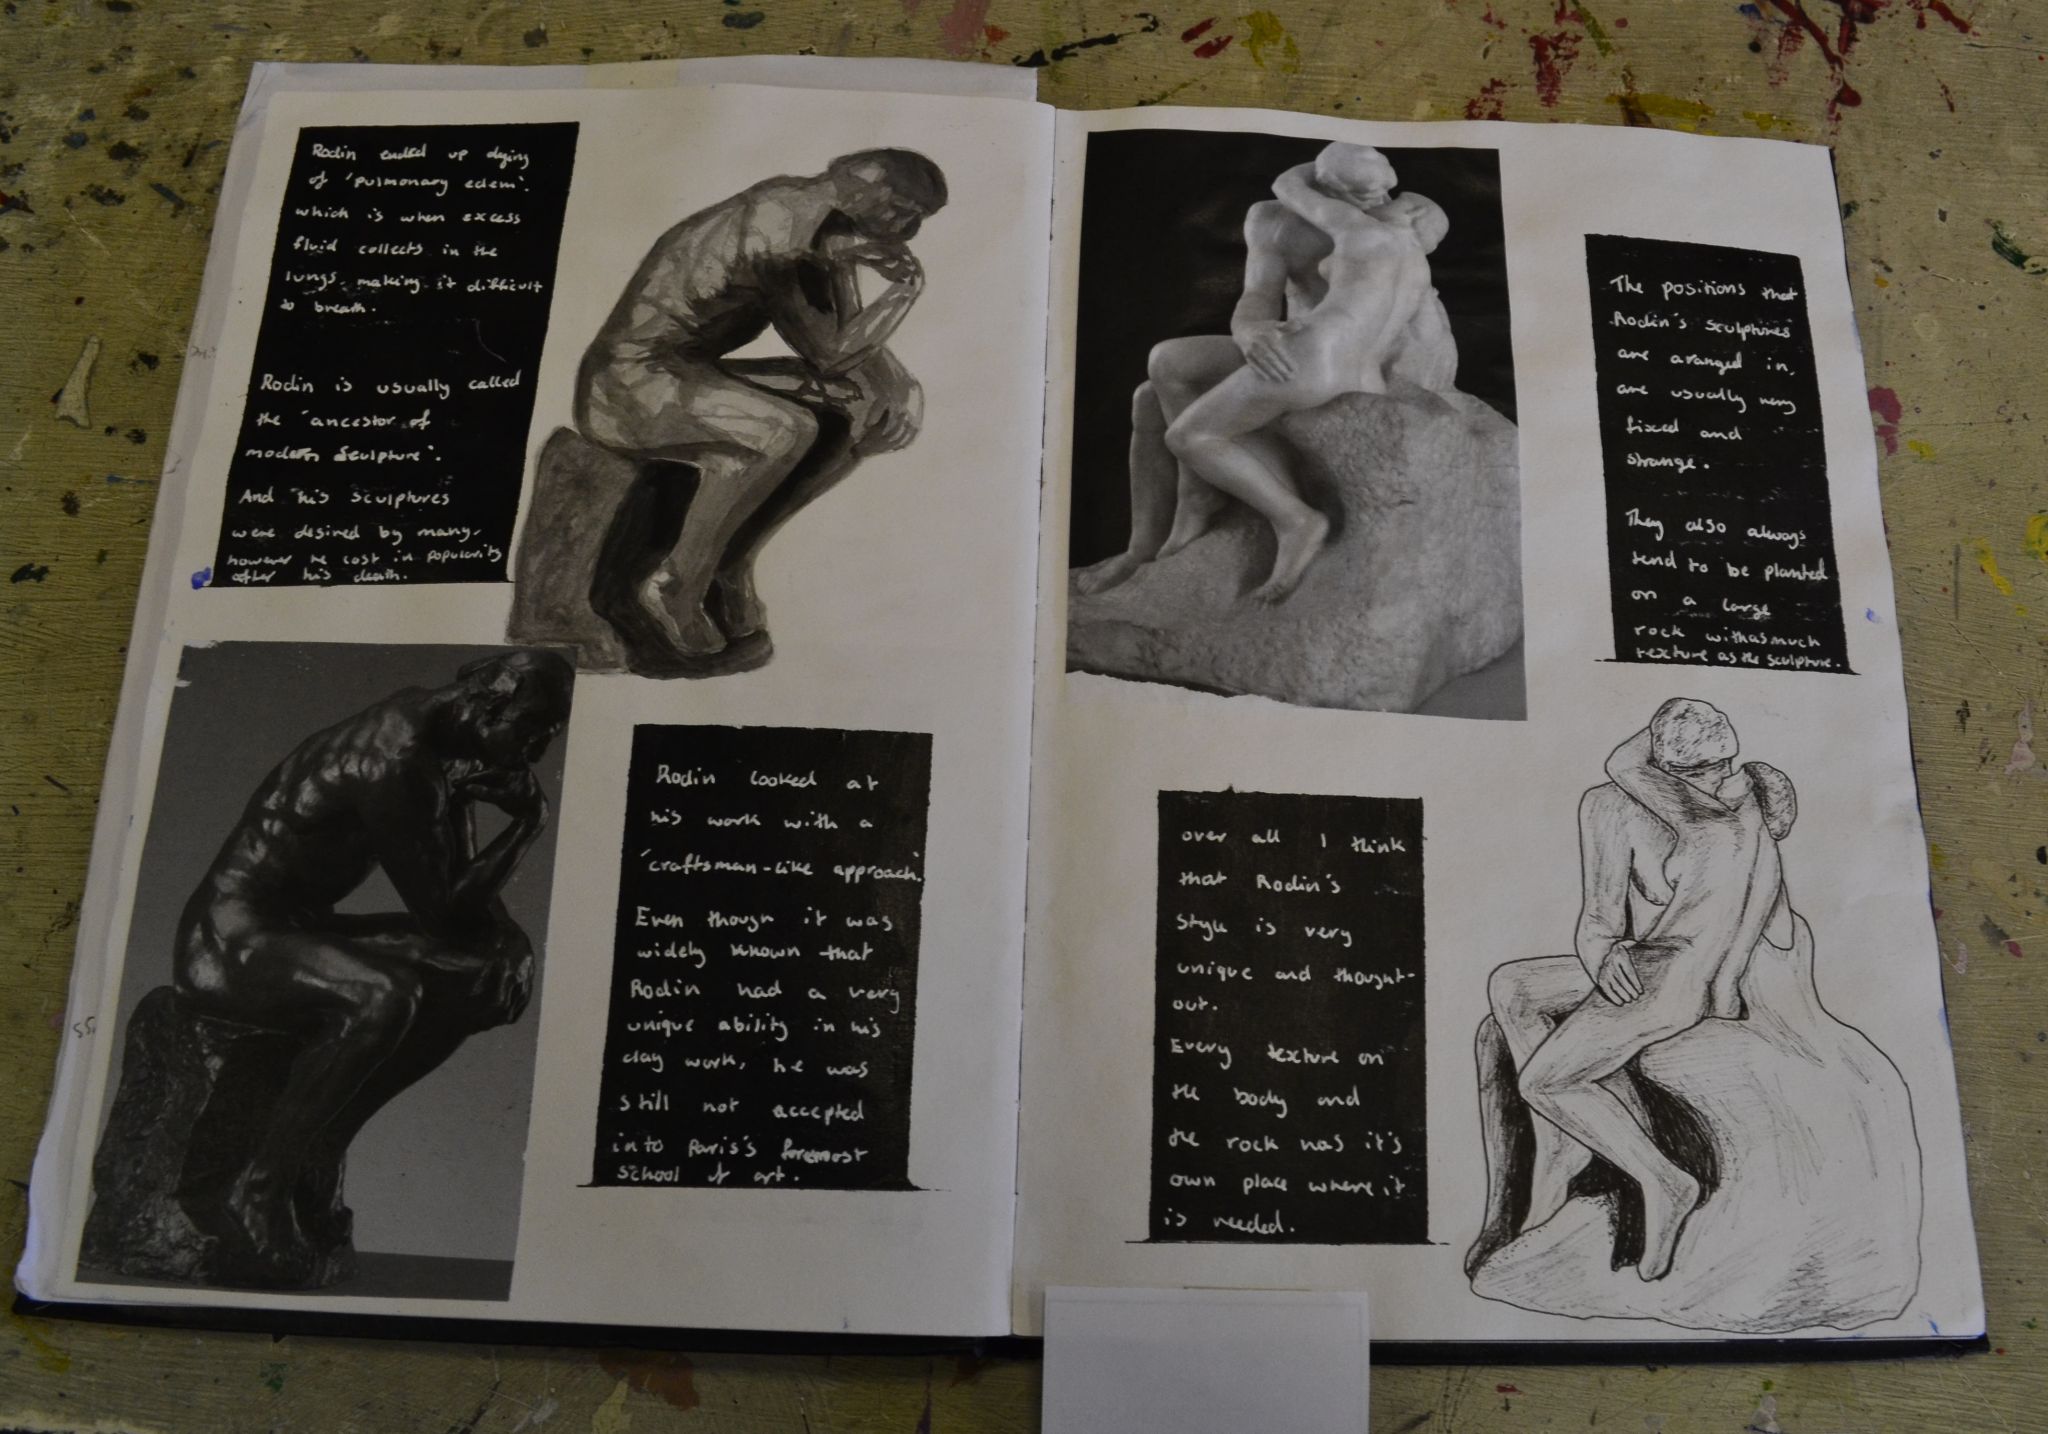 Rodin ended up dying
of 'pulmonary edem'.
which is when excess
fluid collects in the
lungs, making it difficult
to breath.
Rodin is usually called
the 'ancestor of
modern sculpture'.
And his sculptures
were desired by many,
however he lost in popularity
after his death.
Rodin looked at
his work with a
'craftsman-like approach.'
Even though it was
widely known that
Rodin had a very
unique ability in his
clay work, he was
still not accepted
into Paris's foremost
school of art.
The positions that
Rodin's sculptures
are aranged in,
are usually very
fixed and
strange.
They also always
tend to be planted
on a large
rock with as much
texture as the sculpture.
over all I think
that Rodin's
style is very
unique and thought-
out.
Every texture on
the body and
the rock has it's
own place where it
is needed.